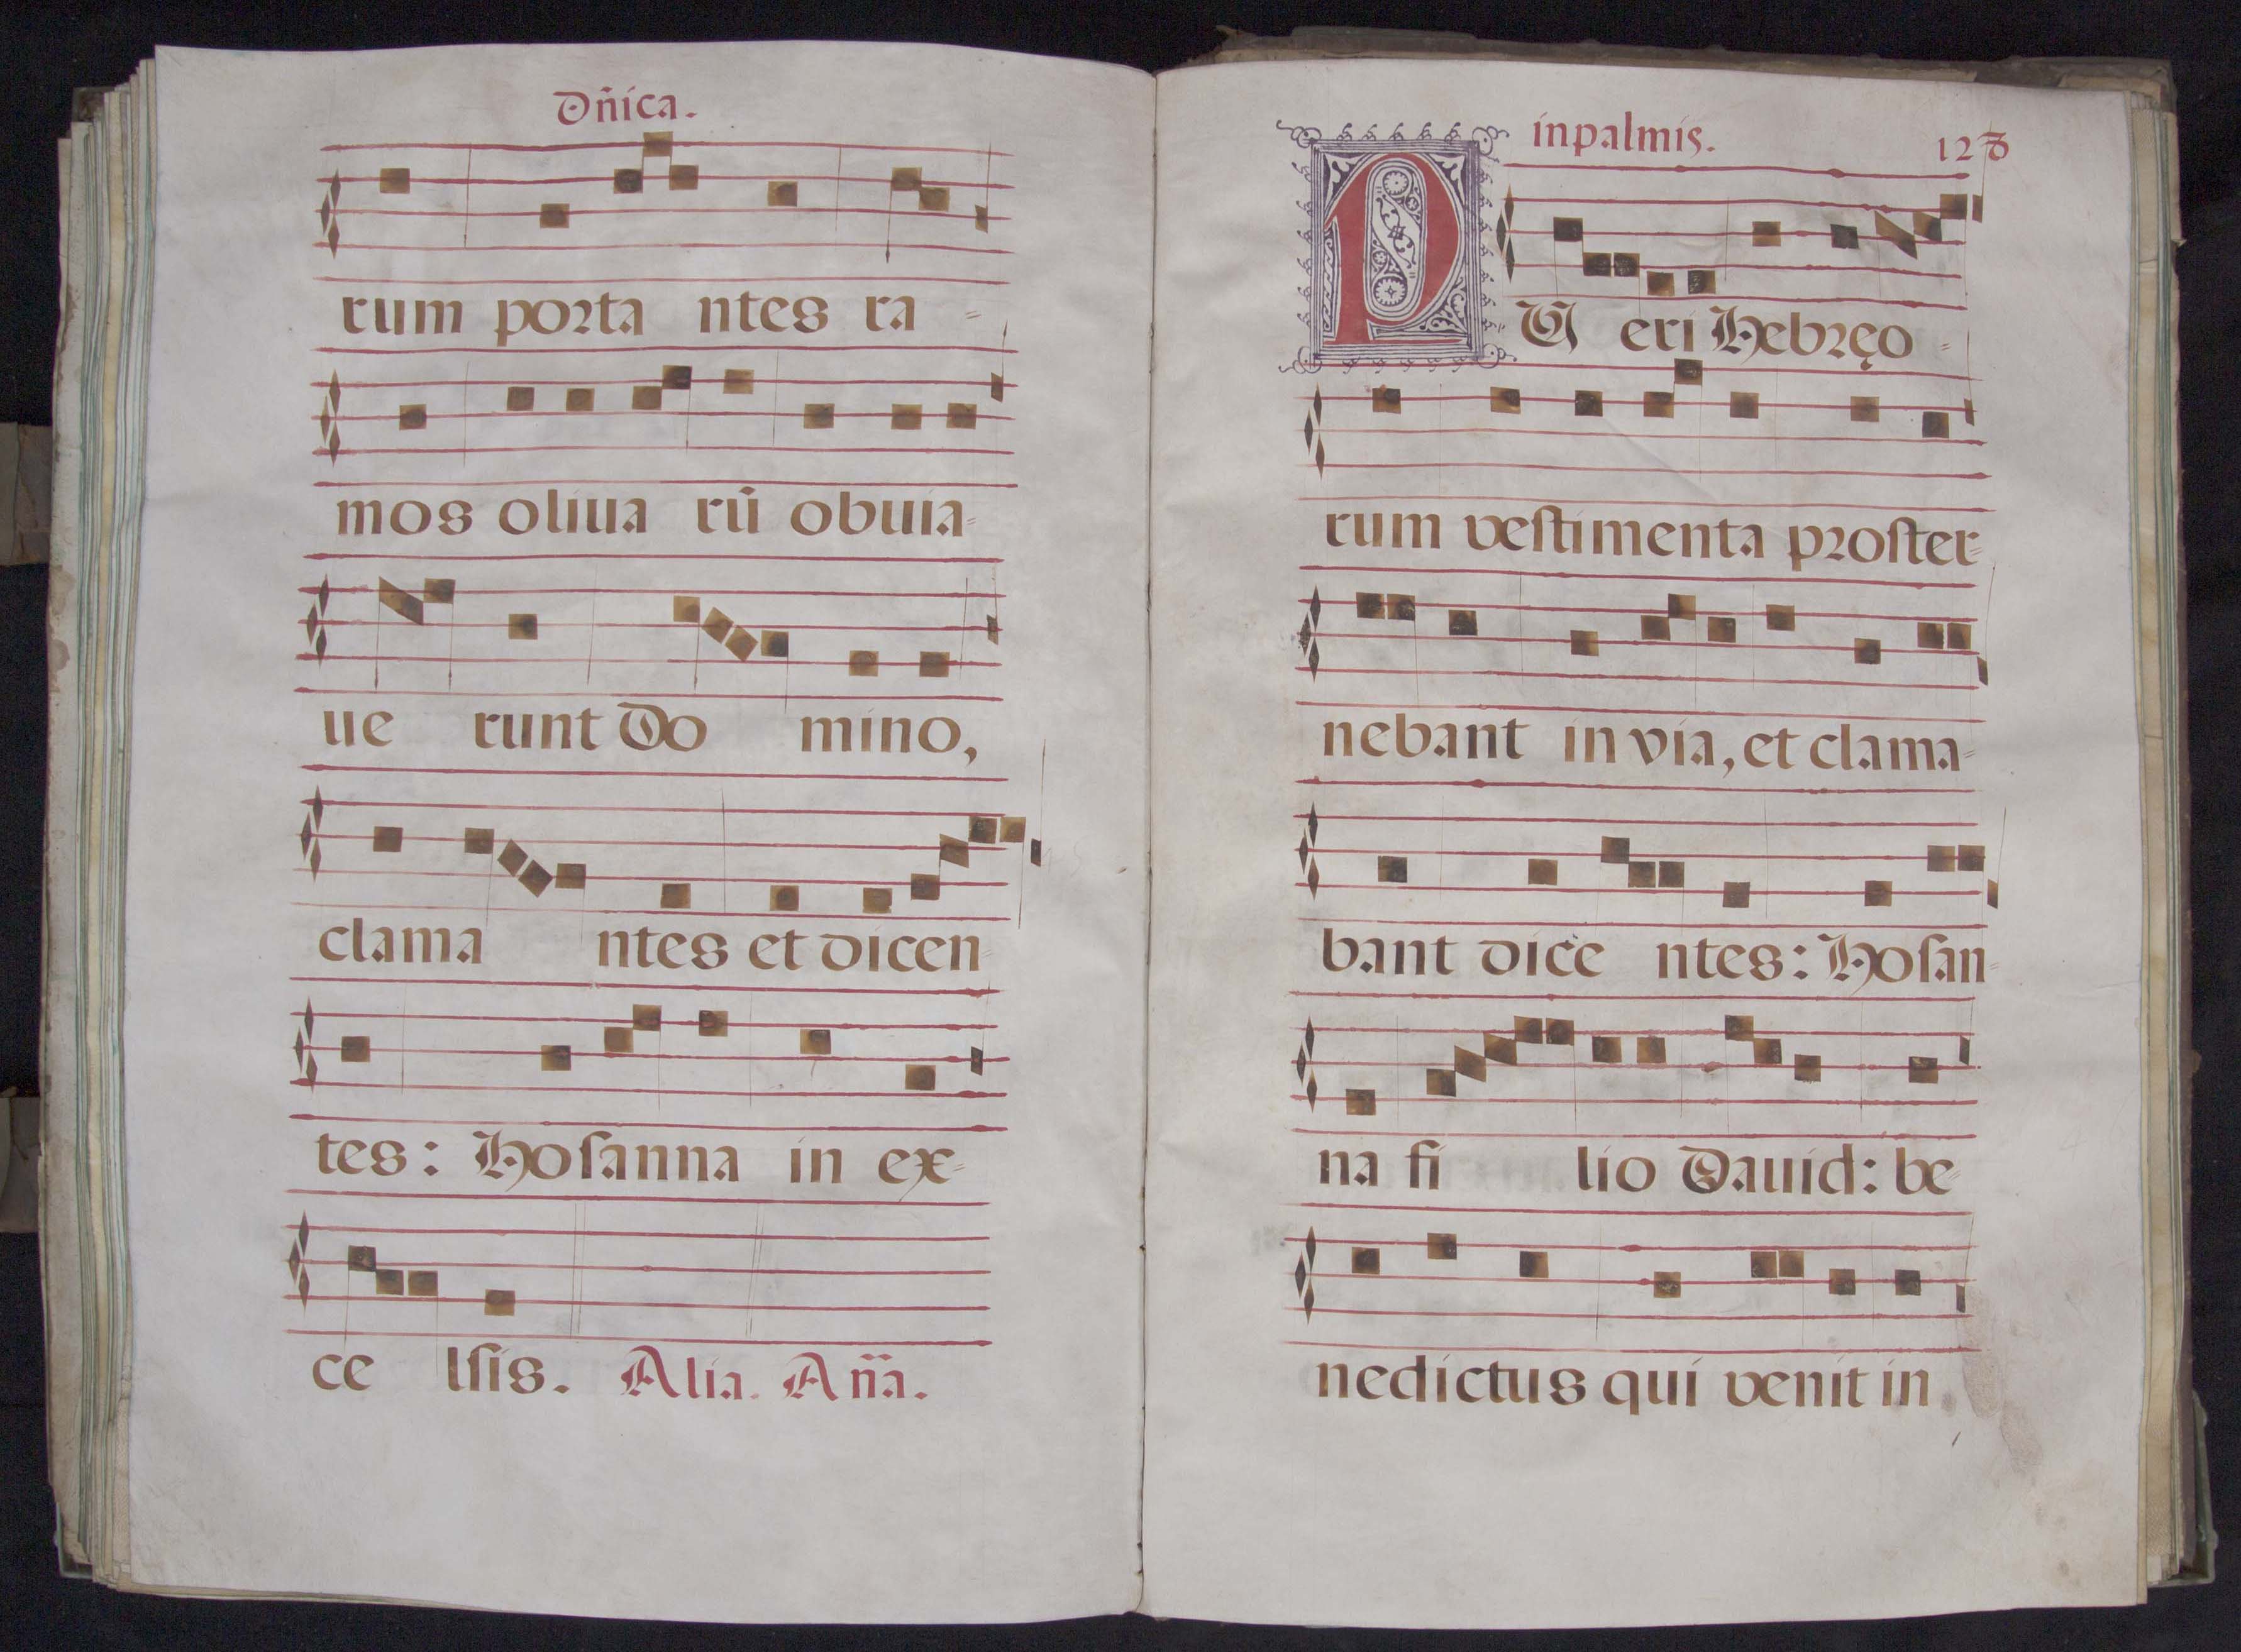 Dñica.
rum porta ntes ra-
mos oliua rū obuia-
ue runt Do mino,
clama ntes et dicen-
tes: Hosanna in ex-
ce lsis. Alia. Aña.
in palmis.
P
V eri Hebręo-
rum vestimenta proster-
nebant in via, et clama-
bant dice ntes: Hosan-
na fi lio Dauid: be-
nedictus qui venit in